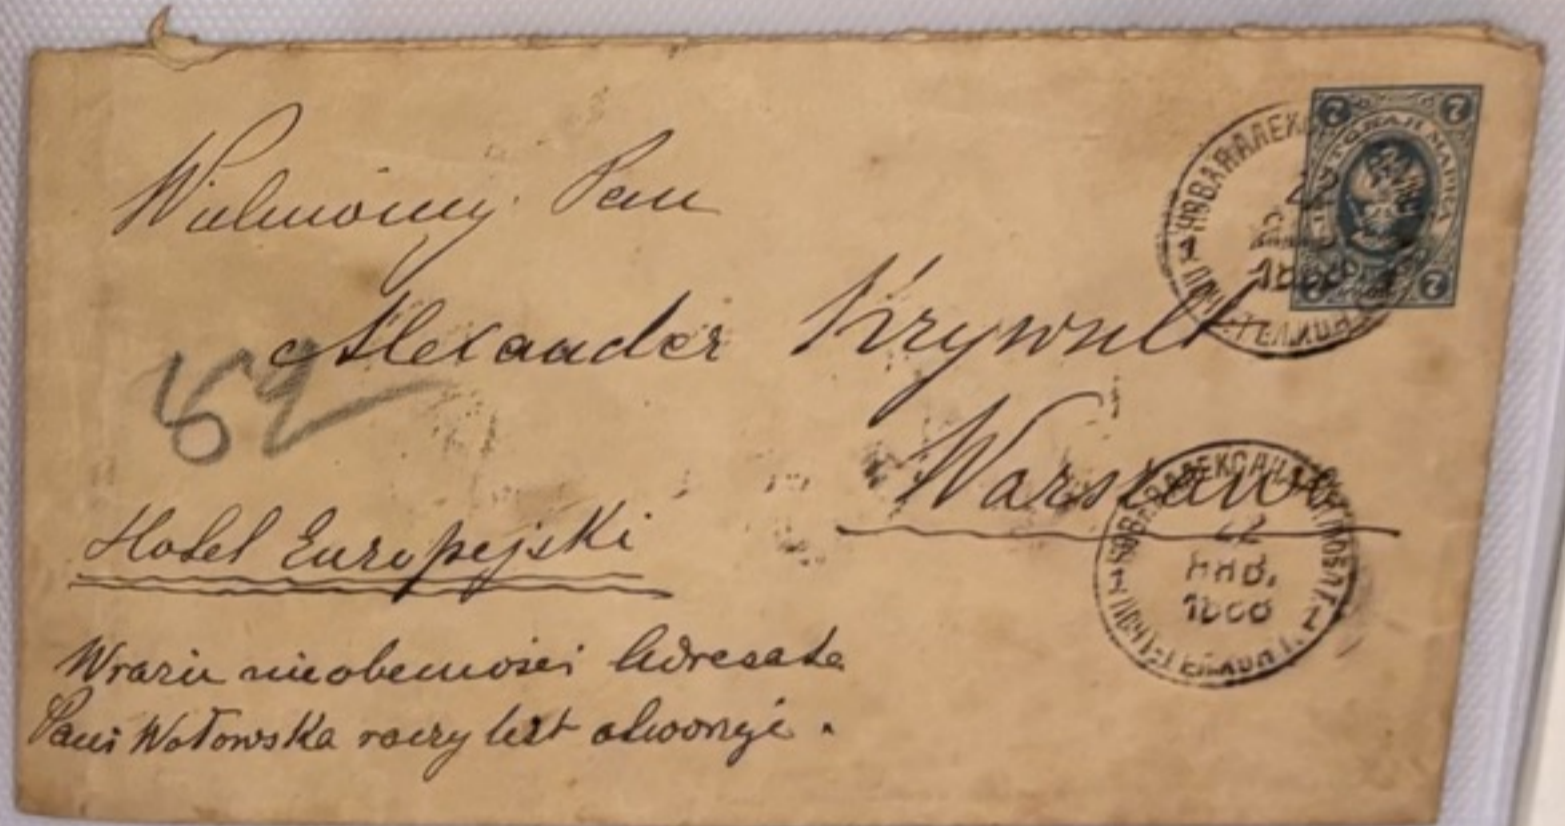 Wielmożny Pan
Alexander Krywult
Warszawa
52
Hotel Europejski
W razie nieobecności Adresata
Pani Wołowska raczy list otworzyć.
7 7
МАРКА
7
НОВАЯ АЛЕКС
22
НОВ. АЛЕКСАНД ЛЮБЛ. Г.
22
ЯНВ.
ПОЧТ. ТЕЛ. КОНТ.